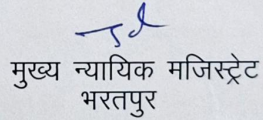 मुख्य न्यायिक मजिस्ट्रेट
भरतपुर